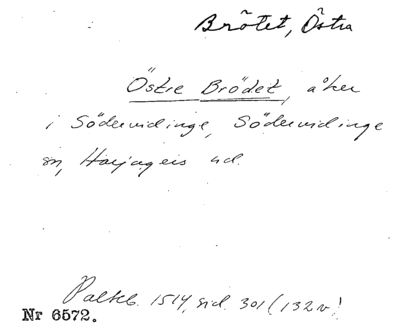 Brötet, Östra
Östre Brödet, åker
i Södervidinge, Södervidinge
sn, Harjagers hd.
Palteb. 1514, sid. 301 (132 v)
Nr 6572.